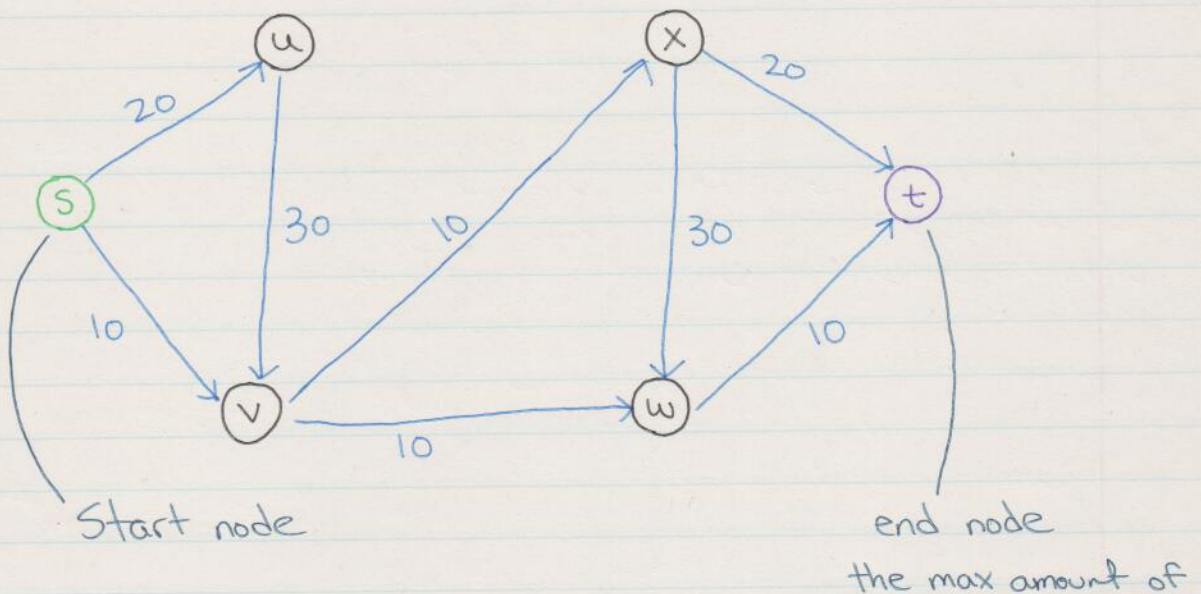 u
x
20
20
s
t
30
10
30
10
10
v
w
10
Start node
end node
the max amount of